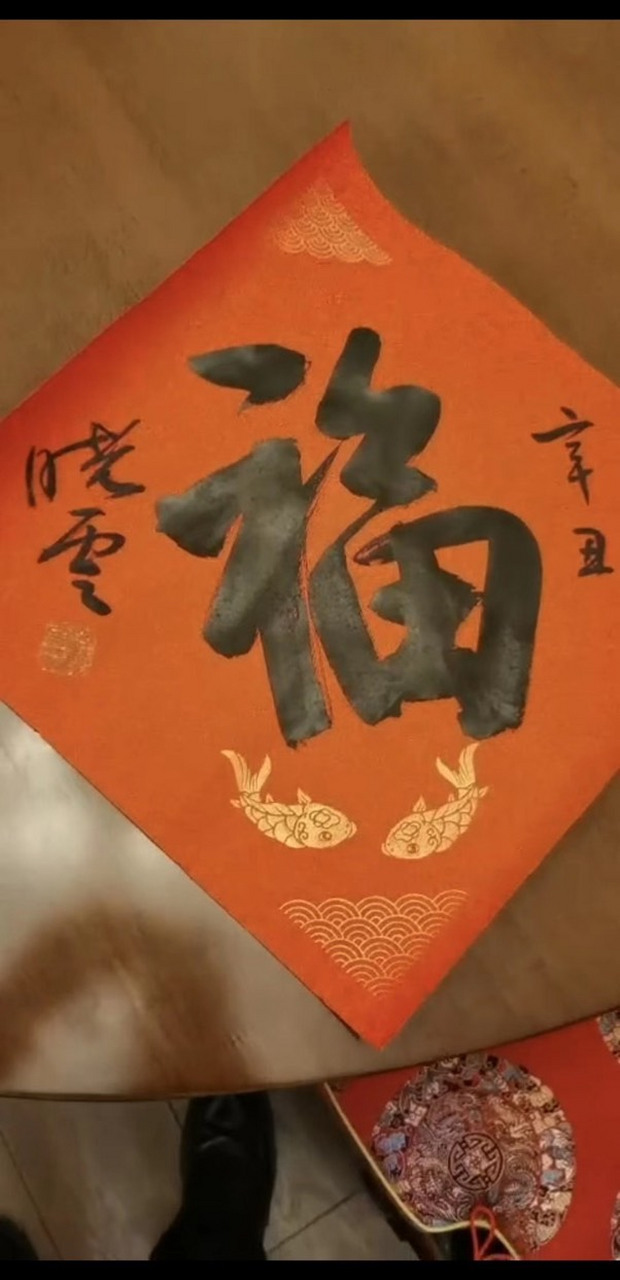 辛丑
福
晓云